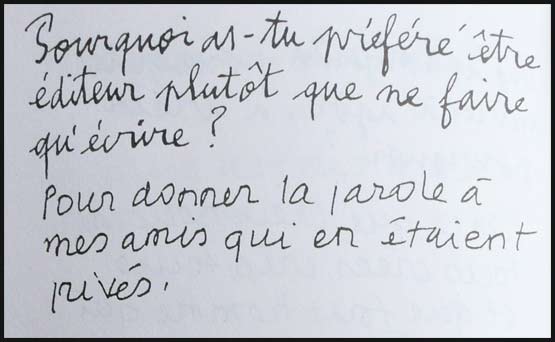 Pourquoi as-tu préféré être
éditeur plutôt que ne faire
qu'écrire ?
Pour donner la parole à
mes amis qui en étaient
privés.